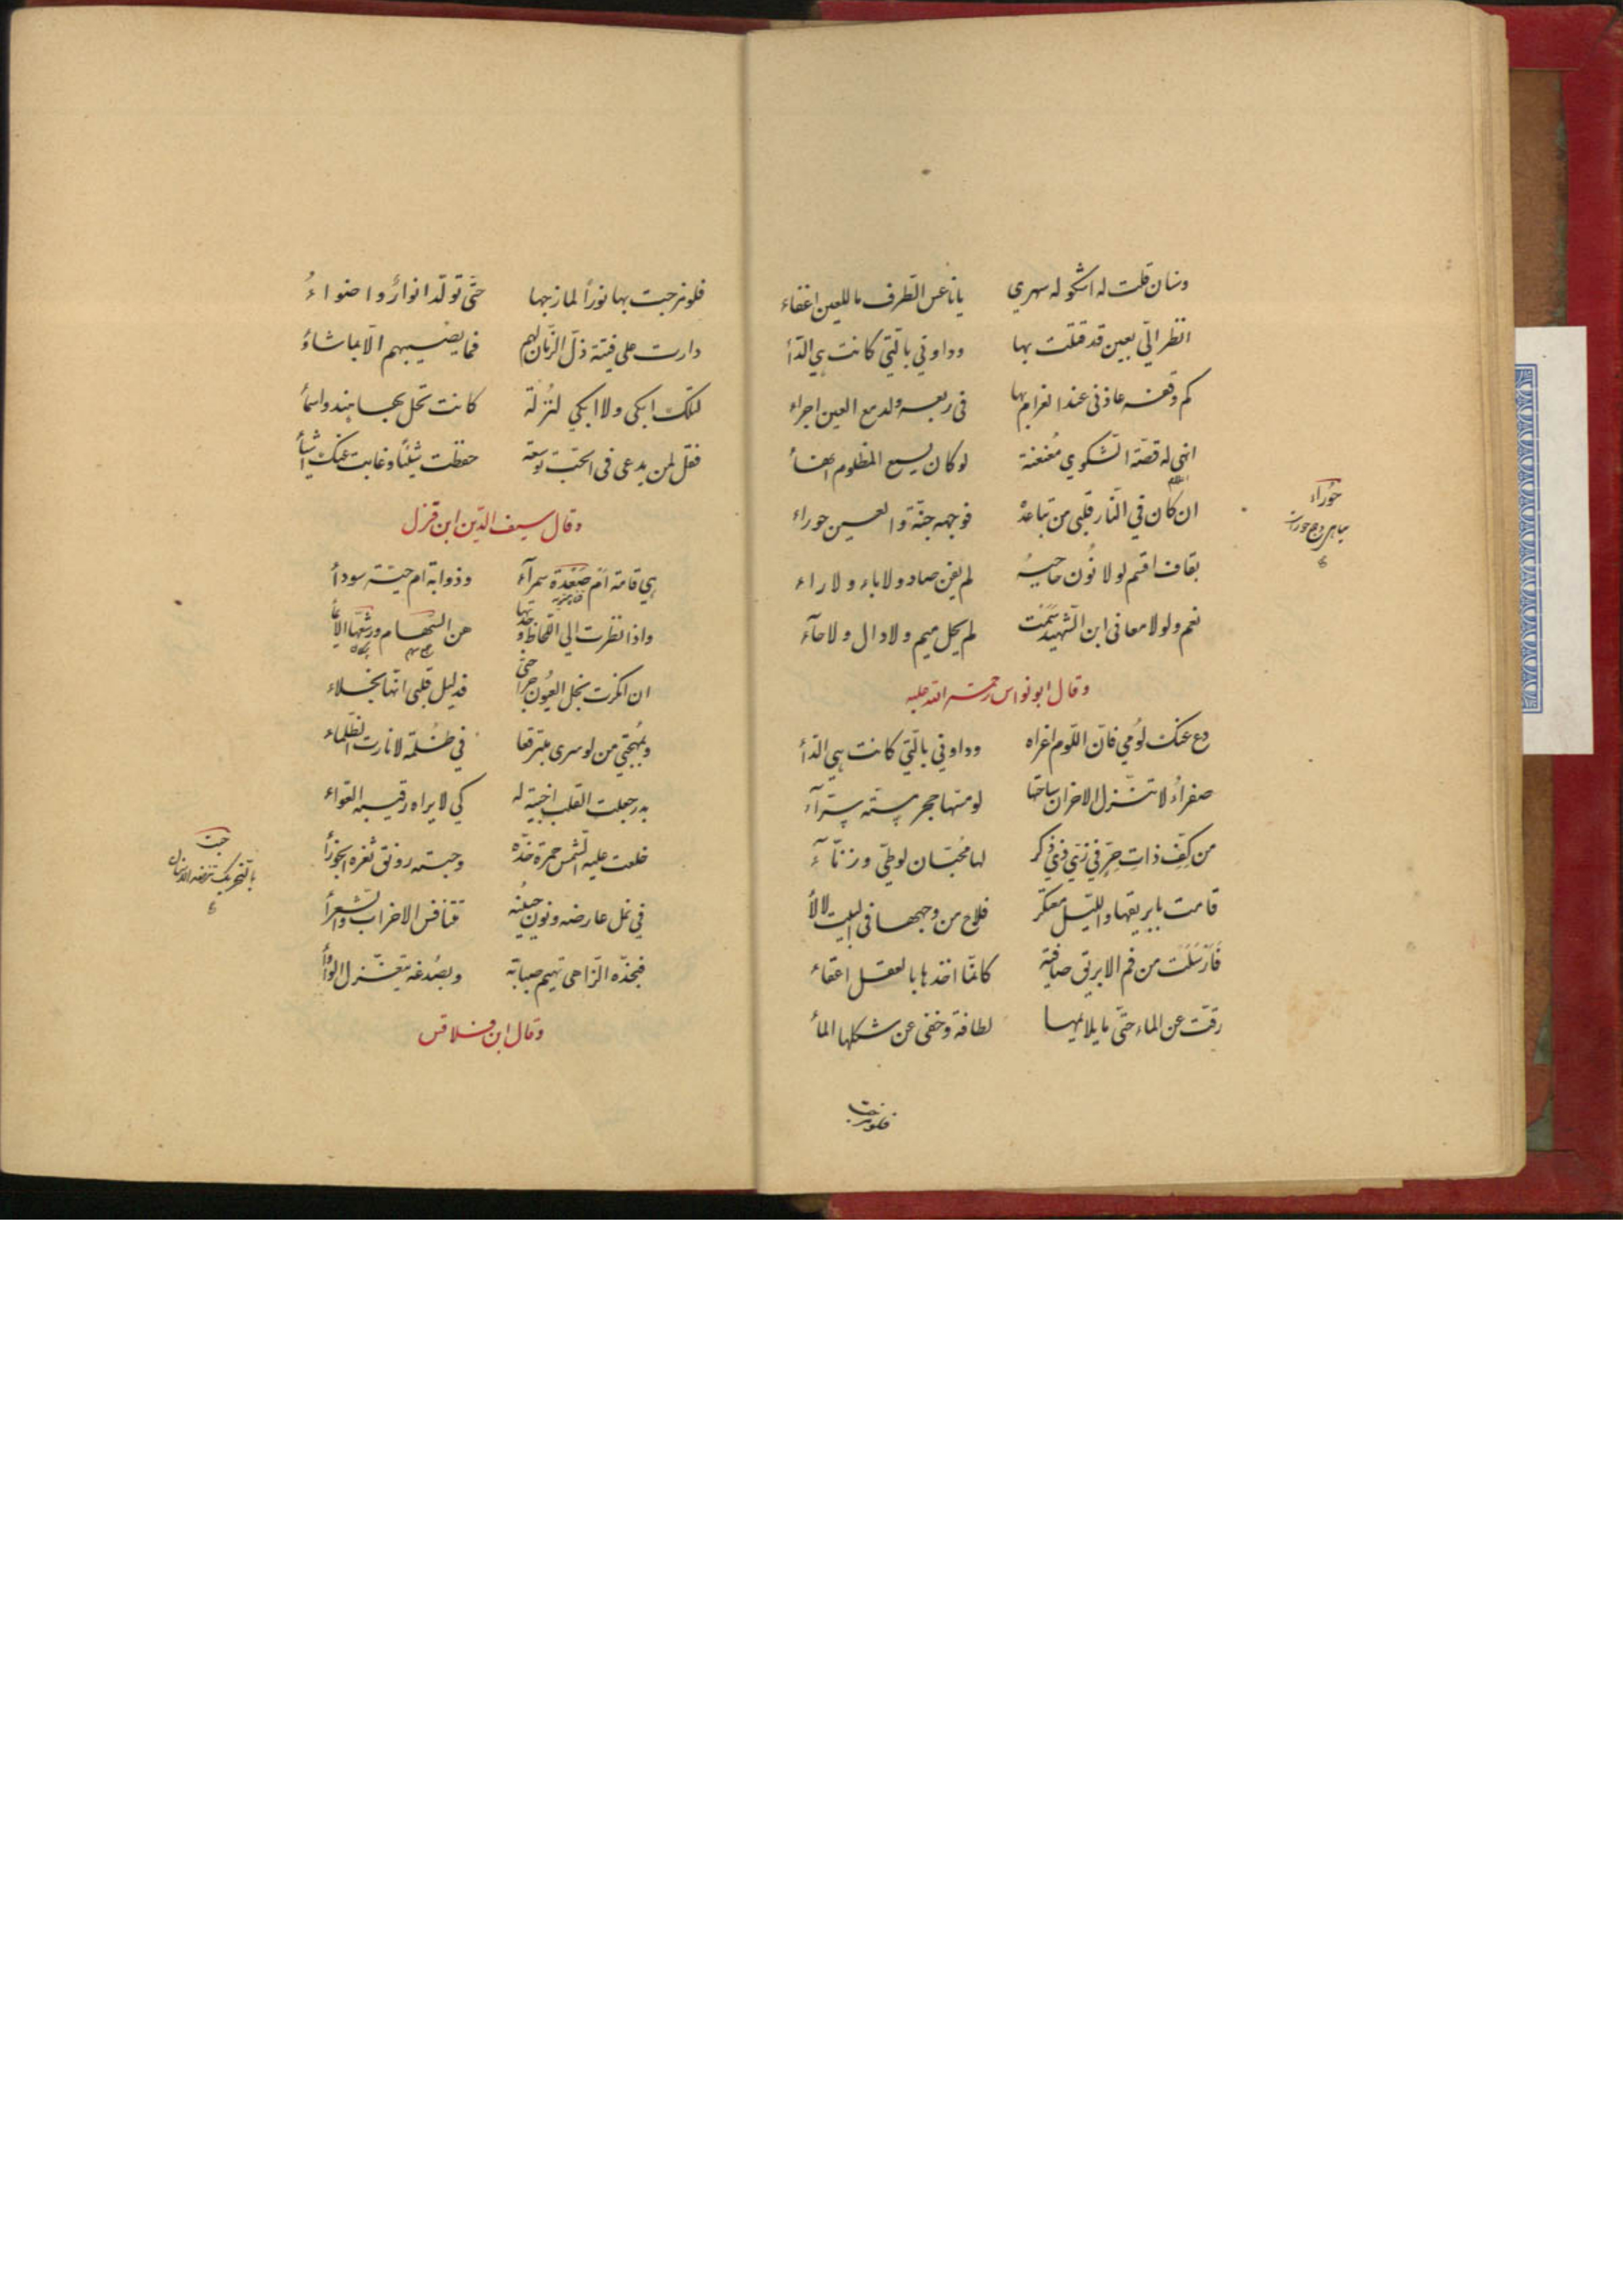 وسنان قلت له اشكو له سهري يا ناعس الطرف ما للعين اغفاء
انظر الّي بعين قد قتلت بها وداوني بالّتي كانت هي الدّأ
كم وقعة عاذلي عند الغرام بها في ربعه ولدمع العين اجراء
انهي له قصّة الشكوي مُعنعنة لو كان يسمع المظلوم انهاأ
ان كان في النّار قلبي من تباعده فوجهه جنّة والعين حوراء
حَوراء
بقاف اقسم لولا نُون حاجبهُ لم يغن صاد ولا باء ولا راء
نعم ولولا معاني ابن الشّهيد سَمَت لم يحل ميم ولا دال ولا حآء
وقال ابو نواس رحمة الله عليه
دع عنك لومي فانّ اللّوم اغراء وداوني بالّتي كانت هي الدّأ
صفراءُ لا تنزل الاحزان ساحتها لو مسّها حجر مسّته سرّآء
من كفّ ذات حِرٍ في زيّ ذي ذكر لها مُحبّان لوطيّ وزنّآء
قامت بابريقها والليل معتكر فلاح من وجهها في البيت لألأ
فَأرْسَلَت من فم الابريق صافية كانّما اخذها بالعقل اغفاء
رقّت عن الماء حتّى ما يلايمها لطافة وخفي عن شكلها المأ
فلو مزجت
فلو مزجت بها نوراً لمازجها حتّى تولّد انوارٌ واضواءُ
دارت على فتية ذلّ الزّمان لهم فما يصيبهم الّا بما شاؤُ
لتلك ابكي ولا ابكي لمنزلة كانت تحل بها هند واسمأ
فقل لمن يدعي في الحبّ توسعة حفظت شيئًا وغابت عنك اشيأ
وقال سيف الدّين ابن قزل
هي قامة أم صَعْدة سمرآء وذوابة ام حيّة سودأ
واذا نظرت الي اللّحاظ وجدتها هن السّهام ورشقها الايمأ
ان انكرت نجل العيون جراحتي فدليل قلبي انّها نجلاء
وبمُهجتي من لو سرى متبرقعا في ظلمة لانارت الظّلماء
بدر جعلت القلب اخبية له كي لا يراه رقيبه العوّاء
خلعت عليه الشّمس حمرة خدّه وحبته رونق ثغره الجوزأ
في نمل عارضه ونون جبينه تتنافس الاحزاب والشّعرأ
فبخدّه الزّاهي نهيم صبابة وبصُدغه يتغزّل الوأوأ
وقال ابن قلاقس